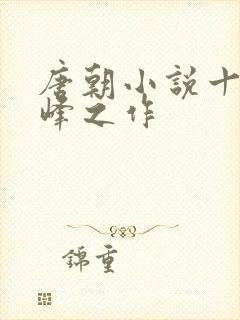 唐朝小説十
峰之作
錦重